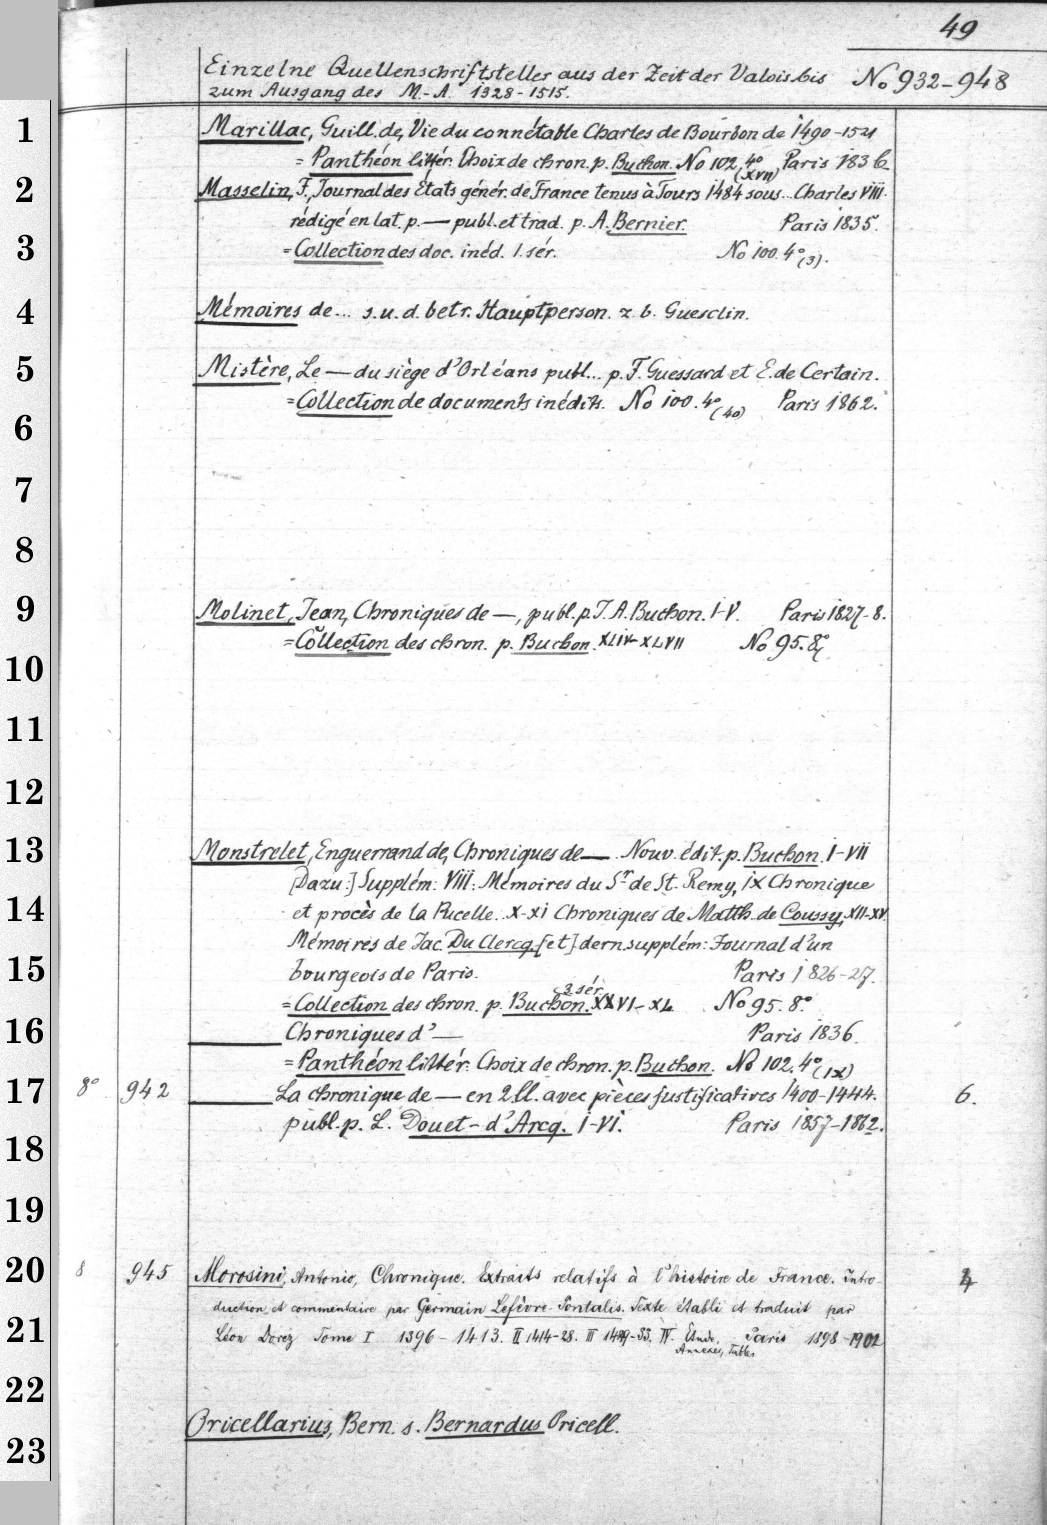 49
Einzelne Quellenschriftsteller aus der Zeit der Valois bis No 932-948
zum Ausgang des M.-A. 1328-1515.
1 Marillac, Guill. de, Vie du connétable Charles de Bourbon de 1490-1521
= Panthéon littér. Choix de chron. p. Buchon. No 102. 4° (XVII) Paris 1836
2 Masselin, J., Journal des États génér. de France tenus à Tours 1484 sous .. Charles VIII.
rédigé en lat. p. — publ. et trad. p. A. Bernier. Paris 1835.
3 = Collection des doc. inéd. 1. sér. No 100. 4° (3).
4 Mémoires de... s. u. d. betr. Hauptperson. z. b. Guesclin.
5 Mistère, Le — du siège d'Orléans publ... p. F. Guessard et E. de Certain.
= Collection de documents inédits. No 100. 4° (40) Paris 1862.
6
7
8
9 Molinet, Jean, Chroniques de —, publ. p. J. A. Buchon. I-V. Paris 1827-8.
= Collection des chron. p. Buchon. XLIV-XLVII No 95. 8°
10
11
12
13 Monstrelet, Enguerrand de, Chroniques de — Nouv. édit. p. Buchon. I-VII
[Dazu:] Supplém: VIII: Mémoires du Sr de St. Remy, IX Chronique
14 et procès de la Pucelle. X-XI Chroniques de Matth. de Coussy, XII-XV.
Mémoires de Jac. Du Clercq. [et] dern. supplém: Journal d'un
15 bourgeois de Paris. Paris 1826-27.
= Collection des chron. p. Buchon. 2 sér. XXVI-XL No 95. 8°
16 — Chroniques d' — Paris 1836.
= Panthéon littér. Choix de chron. p. Buchon. No 102. 4° (IX)
17 8° 942 — La chronique de — en 2 ll. avec pièces justificatives 1400-1444. 6.
publ. p. L. Douet-d'Arcq. I-VI. Paris 1857-1862.
18
19
20 8 945 Morosini, Antonio, Chronique. Extraits relatifs à l'histoire de France. Intro- 4
duction et commentaire par Germain Lefèvre-Pontalis. Texte établi et traduit par
21 Léon Dorez Tome I 1396-1413. II 1414-28. III 1429-33. IV. Étude, Annexes, Tables Paris 1898-1902
22
Oricellarius, Bern. s. Bernardus Oricell.
23